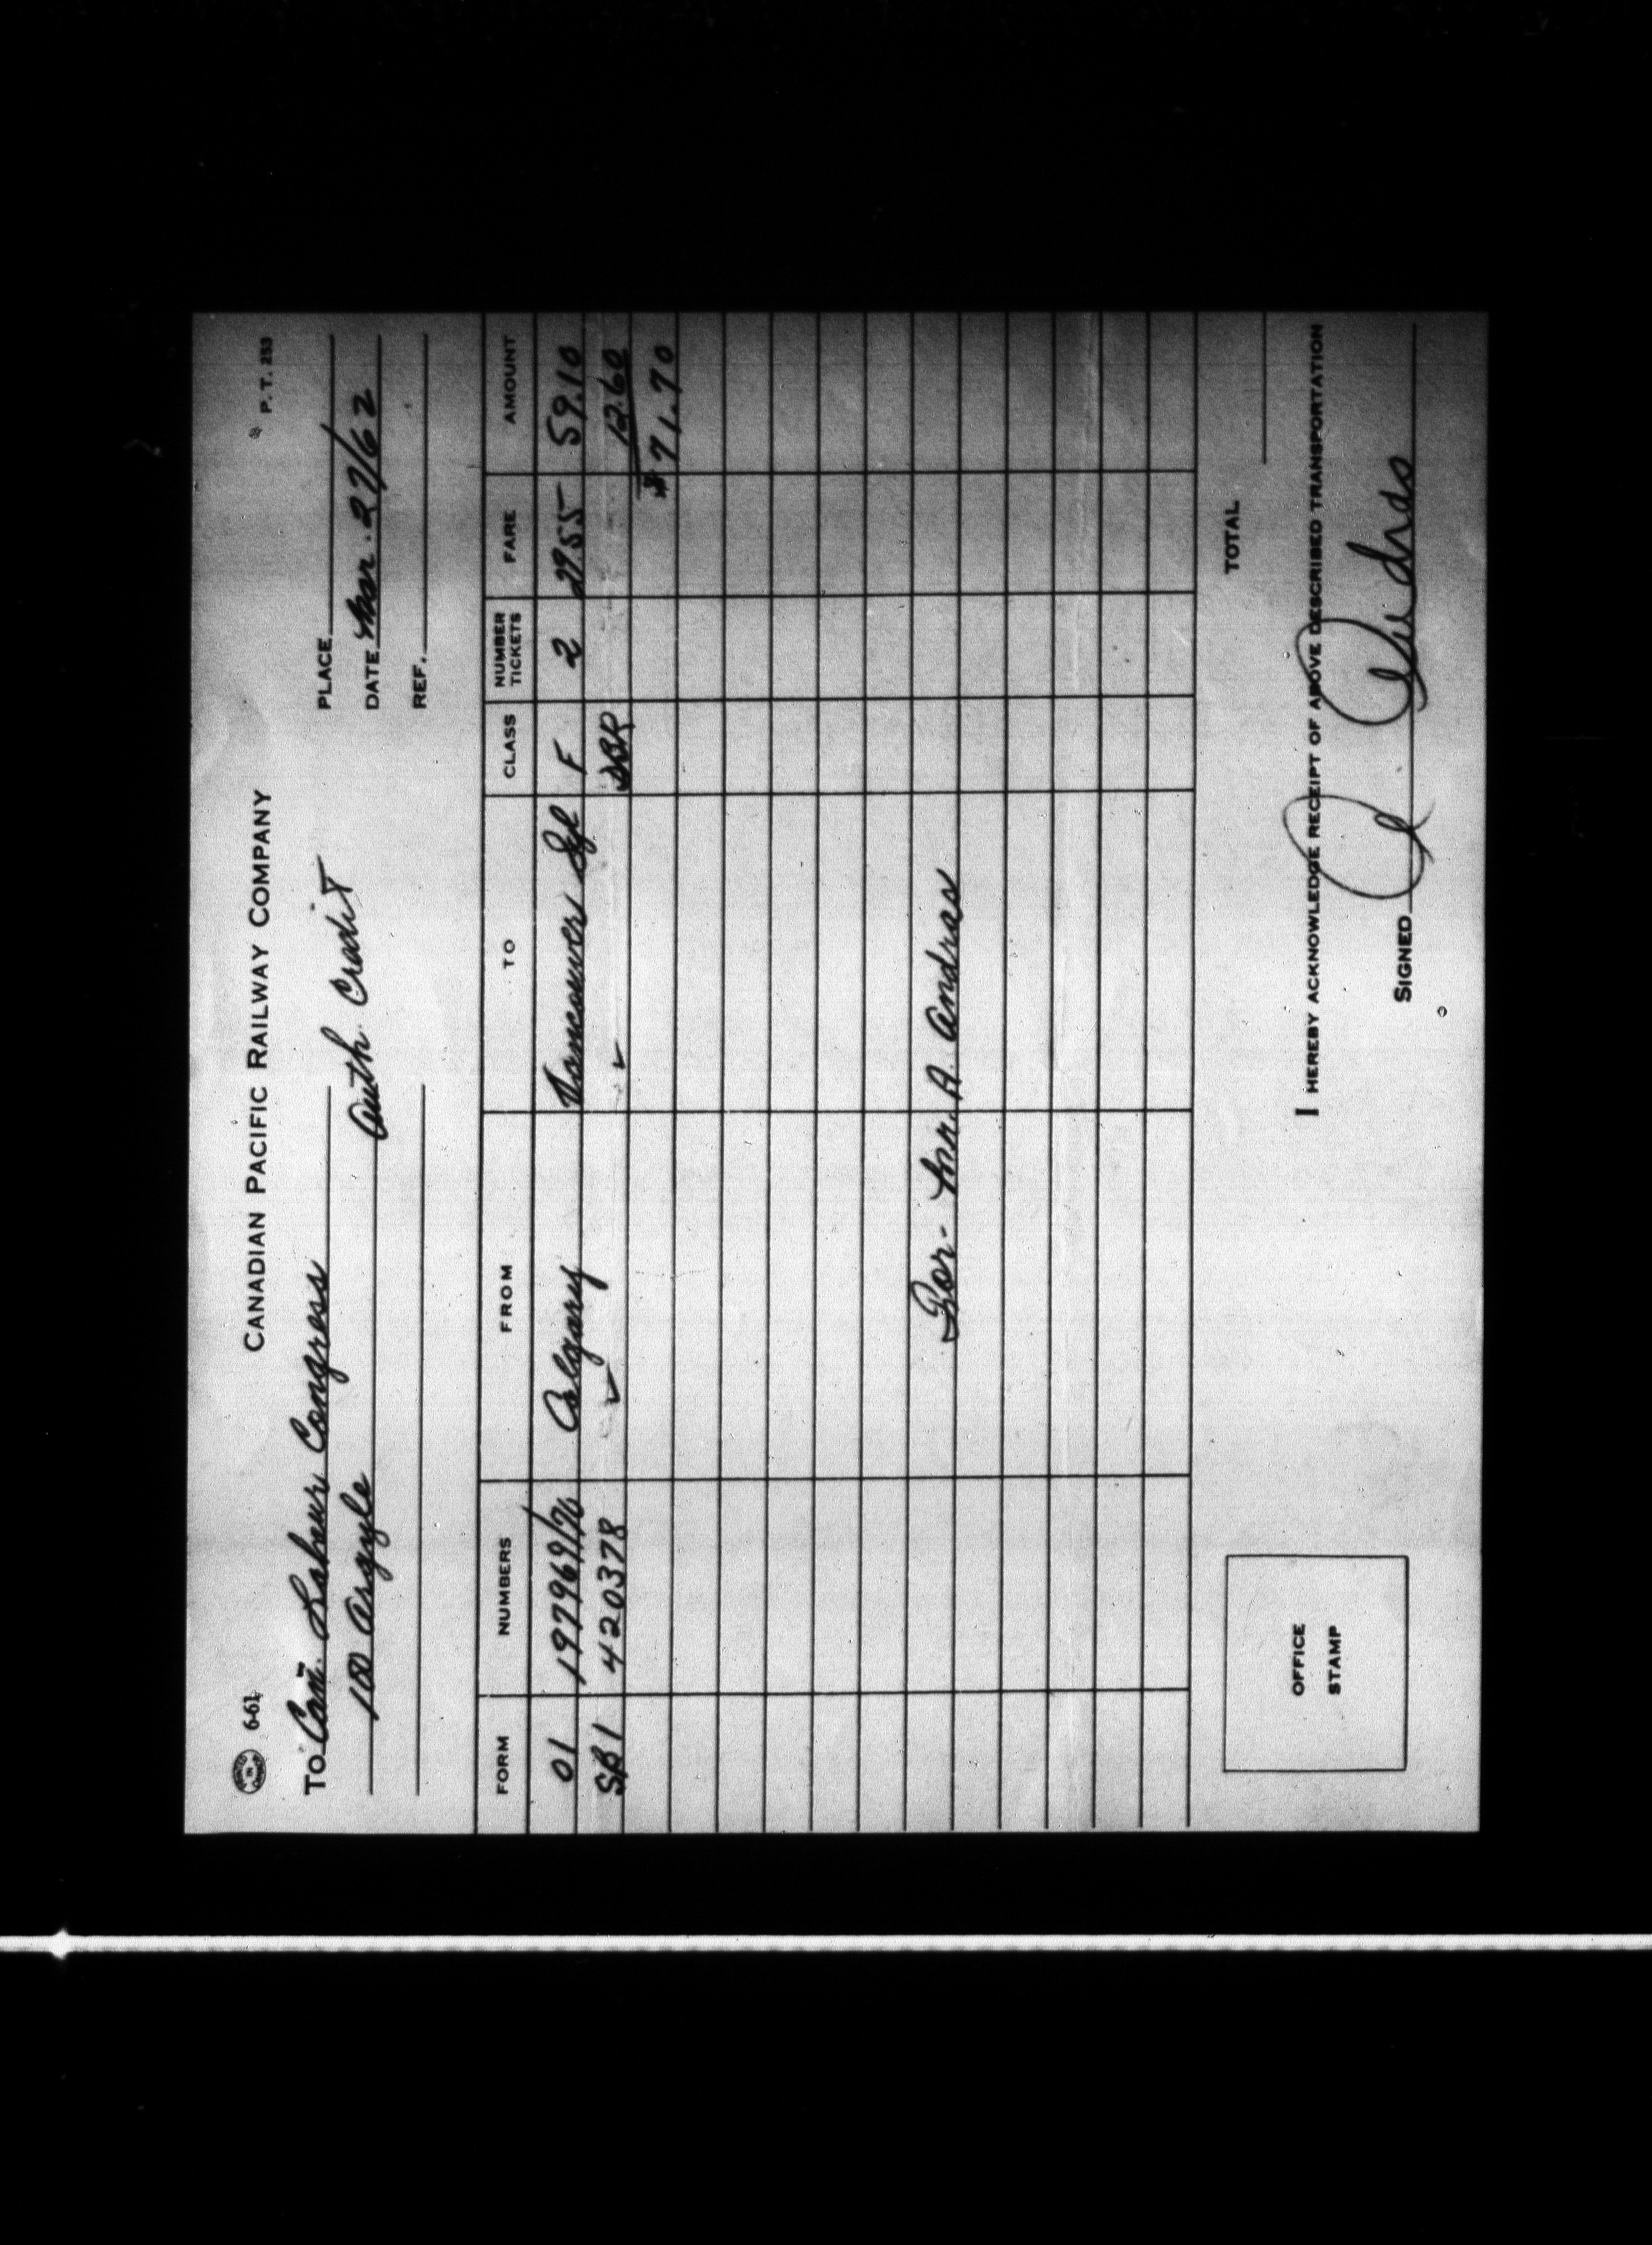 PRINTED IN CANADA 6-61 CANADIAN PACIFIC RAILWAY COMPANY P. T. 253
TO Can. Labour Congress PLACE
100 Argyle Auth. Credit DATE Mar. 27/62
REF.
FORM NUMBERS FROM TO CLASS NUMBER TICKETS FARE AMOUNT
01 197969/70 Calgary Vancouver F 2 29.55 59.10
SB1 420378 ✓ ✓ DBR 12.60
$71.70
For- Mr. A. Andras
TOTAL
I HEREBY ACKNOWLEDGE RECEIPT OF ABOVE DESCRIBED TRANSPORTATION
OFFICE
STAMP
SIGNED A Andras